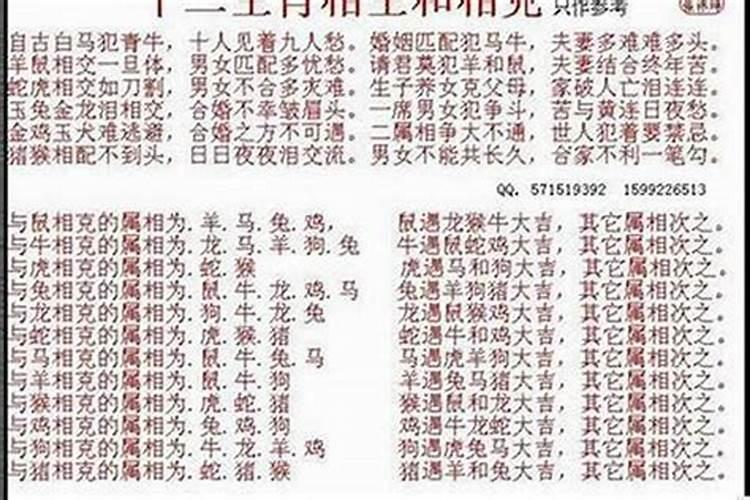 十二生肖相生和相克 只作参考
自古白马犯青牛，十人见着九人愁。婚姻匹配犯马牛，夫妻多难难多头。
羊鼠相交一旦体，男女匹配多忧愁。请君莫犯羊和鼠，夫妻结合终年苦。
蛇虎相交如刀割，男女不合多灾难。生子养女克父母，家破人亡泪连连。
玉兔金龙泪相交，合婚不幸皱眉头。一席男女犯争斗，苦与黄连日夜愁。
金鸡玉犬难逃避，合婚之方不可遇。二属相争大不通，世人犯着要禁忌。
猪猴相配不到头，日日夜夜泪交流。男女不能共长久，合家不利一笔勾。
QQ. 571519392 1599226513
与鼠相克的属相为. 羊. 马. 兔. 鸡， 鼠遇龙猴牛大吉，其它属相次之。
与牛相克的属相为. 龙. 马. 羊. 狗. 兔 牛遇鼠蛇鸡大吉，其它属相次之。
与虎相克的属相为. 蛇. 猴 虎遇马和狗大吉，其它属相次之。
与兔相克的属相为. 鼠. 牛. 龙. 鸡. 马 兔遇羊狗猪大吉，其它属相次之。
与龙相克的属相为. 狗. 牛. 龙. 兔 龙遇鼠猴鸡大吉，其它属相次之。
与蛇相克的属相为. 虎. 猴. 猪 蛇遇牛和鸡大吉，其它属相次之。
与马相克的属相为. 鼠. 牛. 兔. 马 马遇虎羊狗大吉，其它属相次之。
与羊相克的属相为. 鼠. 牛. 狗 羊遇兔马猪大吉，其它属相次之。
与猴相克的属相为. 虎. 蛇. 猪 猴遇鼠和龙大吉，其它属相次之。
与鸡相克的属相为. 兔. 鸡. 狗 鸡遇牛龙蛇大吉，其它属相次之。
与狗相克的属相为. 牛. 龙. 羊. 鸡 狗遇虎兔马大吉，其它属相次之。
与猪相克的属相为. 蛇. 猪. 猴 猪遇羊和兔大吉，其它属相次之。